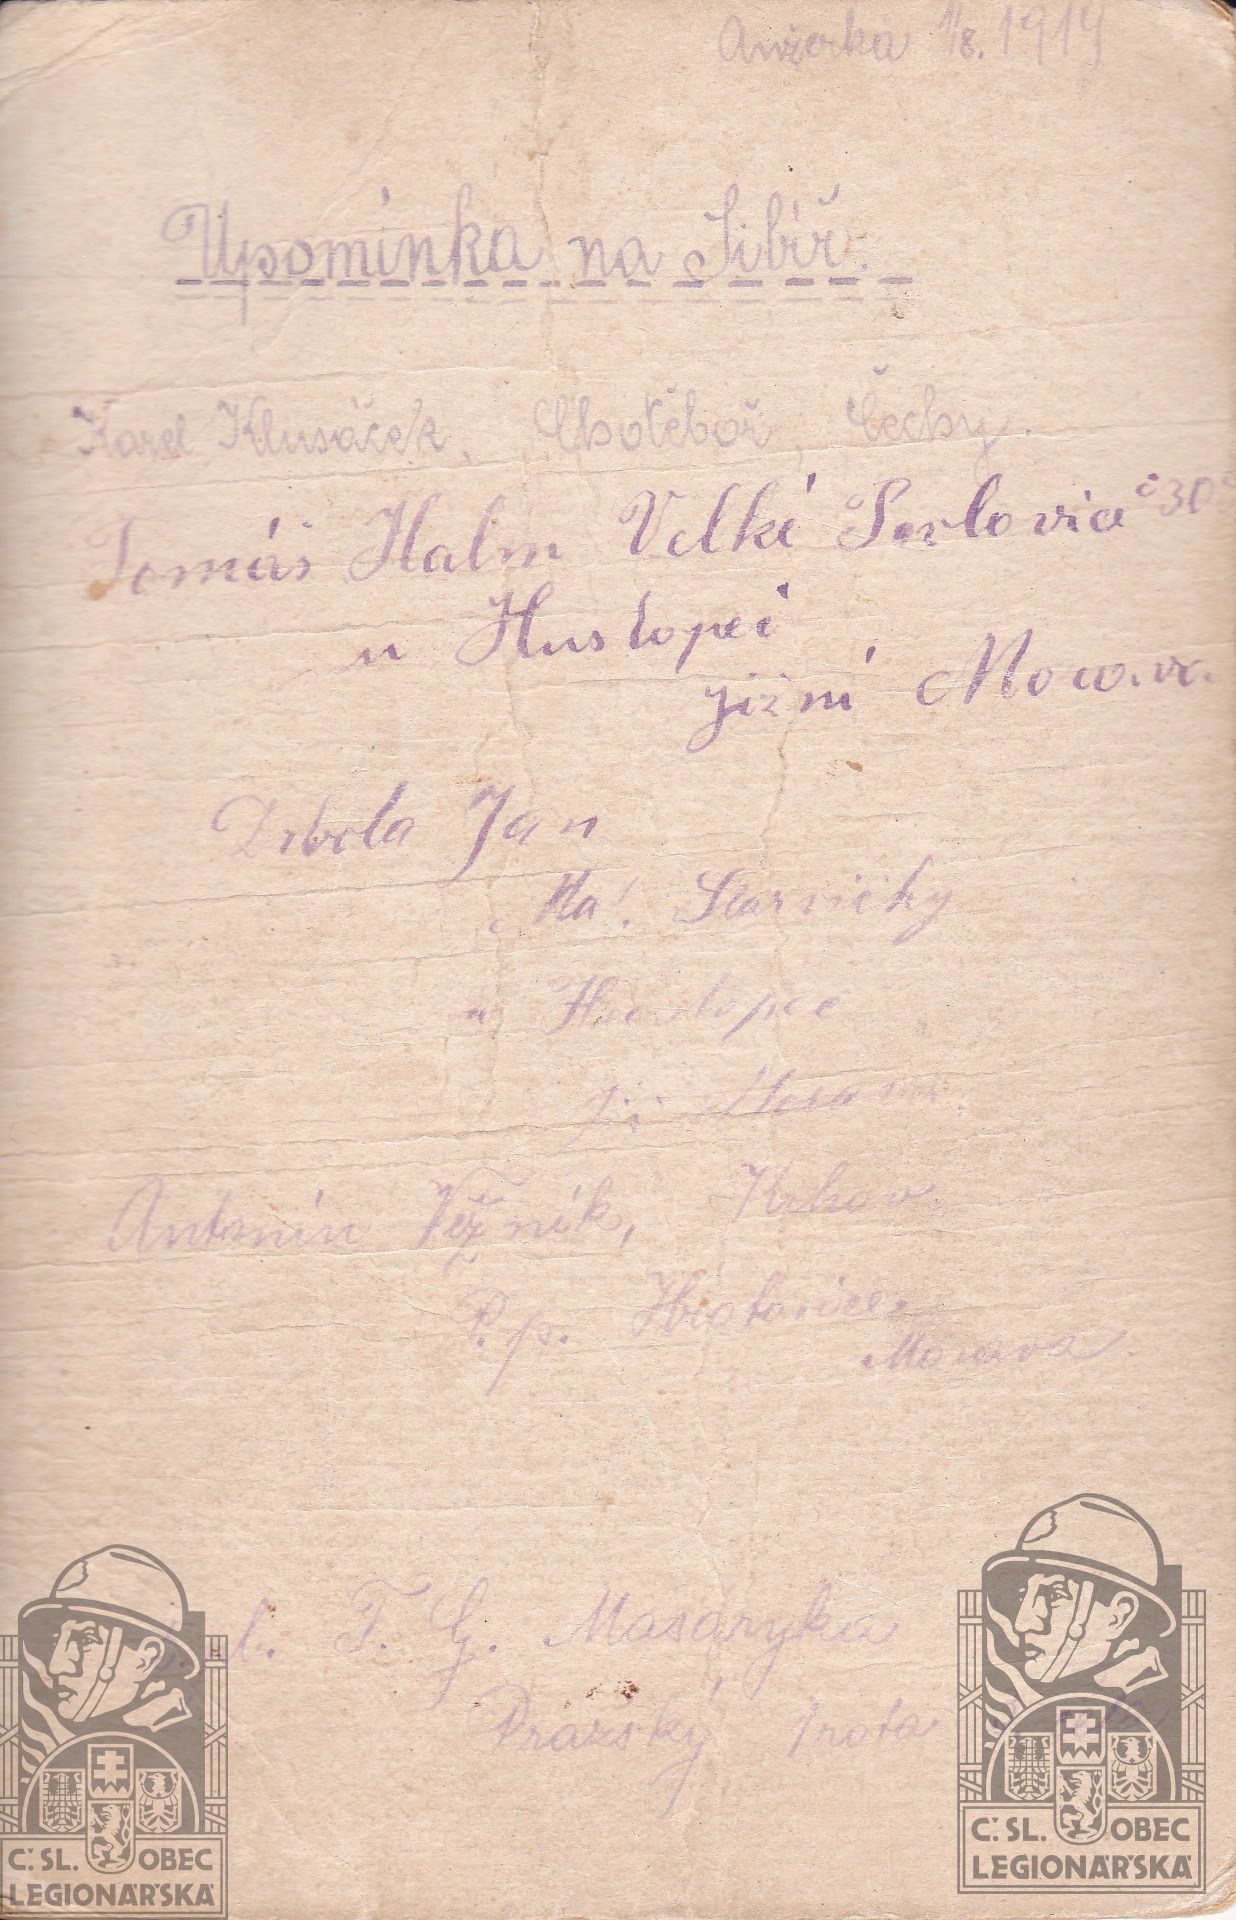 Anžerka 1/8. 1919
Upomínka na Sibíř.
Karel Klusáček, Chotěboř, Čechy.
Tomáš Halm Velké Pavlovice č 30
u Hustopeč
jižní Morava.
Drbola Jan
Starvičky
u Hustopeče
Morava.
Antonín Věžník, Krhov
P. p. Hrotovice,
Morava.
T. G. Masaryka
Pražský rota
Č. SL. OBEC
LEGIONÁŘSKÁ
Č. SL. OBEC
LEGIONÁŘSKÁ